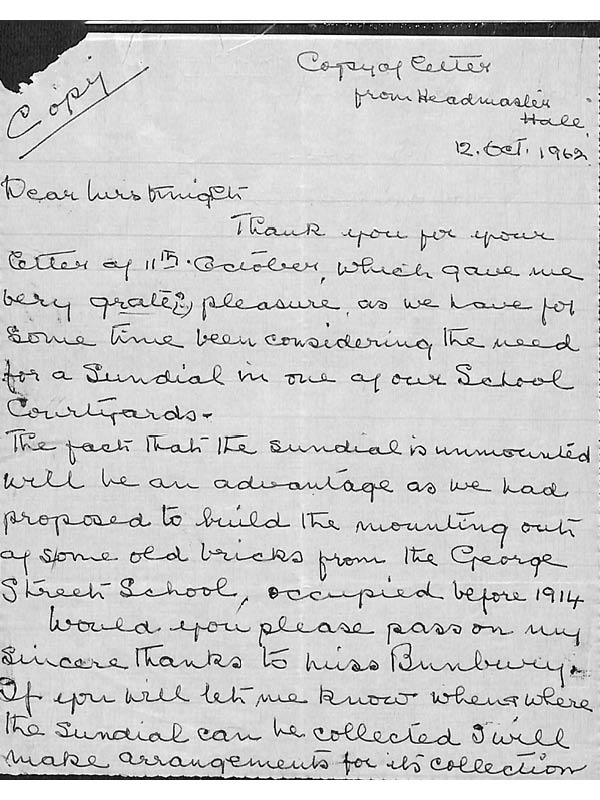 Copy
Copy of letter
from Headmaster
Hale
12. Oct. 1962.
Dear Mrs Knight
Thank you for your
letter of 11th. October, which gave me
very grate(?) pleasure, as we have for
some time been considering the need
for a Sundial in one of our School
Courtyards.
The fact that the sundial is unmounted
will be an advantage as we had
proposed to build the mounting out
of some old bricks from the George
Street School, occupied before 1914
Would you please pass on my
sincere thanks to Miss Bunbury.
If you will let me know when & where
the Sundial can be collected I will
make arrangements for its collection